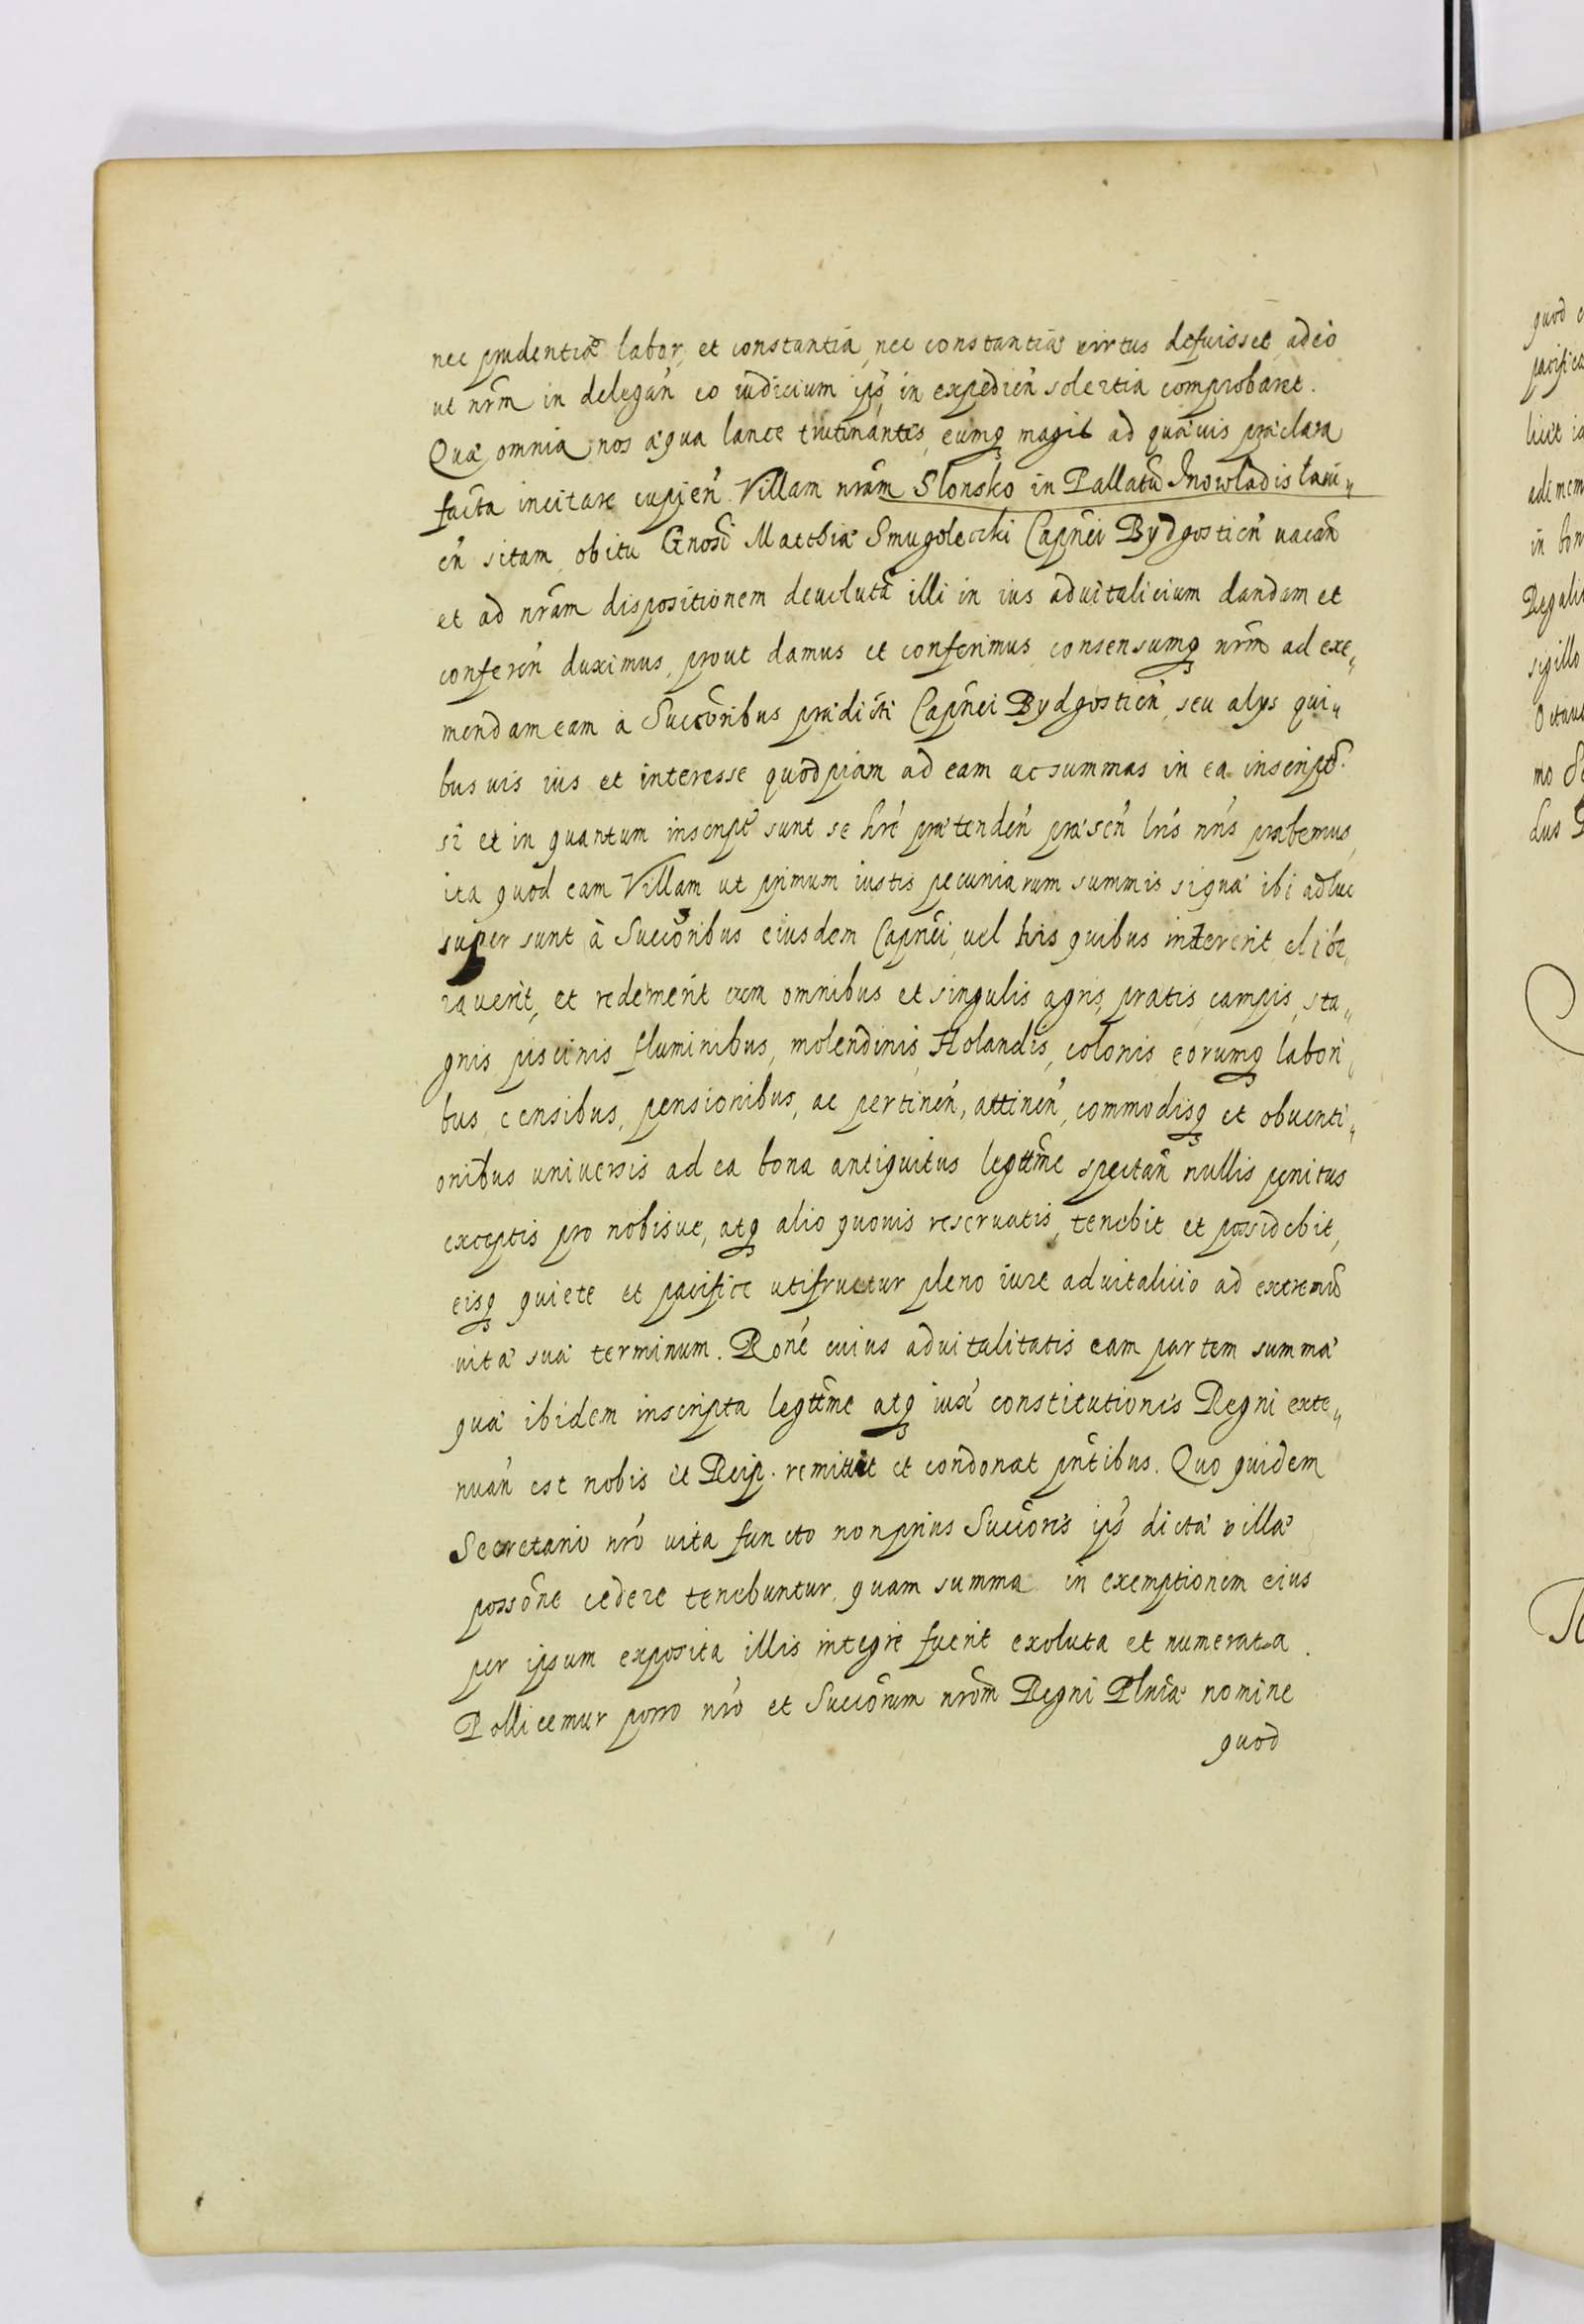 nec prudentiæ labor, et constantia, nec constantiæ virtus defuisset, adeo
ut nrm̃ in delegan̄ eo iudicium ips̄, in expedien̄ solertia comprobaret.
Quæ omnia nos æqua lance trutinantes, eumq̨ magis ad quæuis præclara
facta incitare cupien̄ Villam nrãm Slonsko in Pallatũ Inowladislaui„
en̄ sitam, obitu Gnosĩ Matthiæ Smugolecki Capnẽi Bydgostien̄ uacan̄
et ad nrãm dispositionem deuolutã illi in ius aduitalicium dandam et
conferen̄ duximus, prout damus et conferimus, consensumq̨ nrm̃ ad exe„
mendam eam à Succõribus prædicti Capnẽi Bydgostien̄, seu alys qui„
busuis ius et interesse quodpiam ad eam ac summas in ea inscript̃.
si et in quantum inscript̃ sunt se hrẽ prætenden̄ præsen̄ lrĩs nrĩs præbemus,
ita quod eam Villam ut primum iustis pecuniarum summis siquæ ibi adhuc
super sunt à Succõribus eiusdem Capnẽi, uel his quibus intererit, elibe„
rauerit, et redemerit cum omnibus et singulis agris, pratis, campis, sta„
gnis piscinis fluminibus, molendinis, Holandis, colonis eorumq̨ labori„
bus, censibus, pensionibus, ac pertinen̄, attinen̄, commodisq̨ et obuenti„
onibus uniuersis ad ea bona antiquitus legttm̃e spectan̄ nullis penitus
exceptis pro nobisue, atq̨ alio quouis reseruatis, tenebit et possidebit,
eisq̨ quiete et pacifice utifruetur pleno iure aduitalicio ad extremũ
uitæ suæ terminum. Ronẽ cuius aduitalitatis eam partem summæ
quæ ibidem inscripta legttm̃e atq̨ iuxã constitutiones Regni exte„
nuan̄ est nobis et Reip. remittit et condonat pntĩbus. Quo quidem
Secretario nrõ uita functo non prius Succõres ips̄ dictæ villæ
possõne cedere tenebuntur, quam summa in exemptionem eius
per ipsum exposita illis integre fuerit exoluta et numerata.
Pollicemur porro nrõ et Succõrum nrõm Regni Plniæ nomine
quod